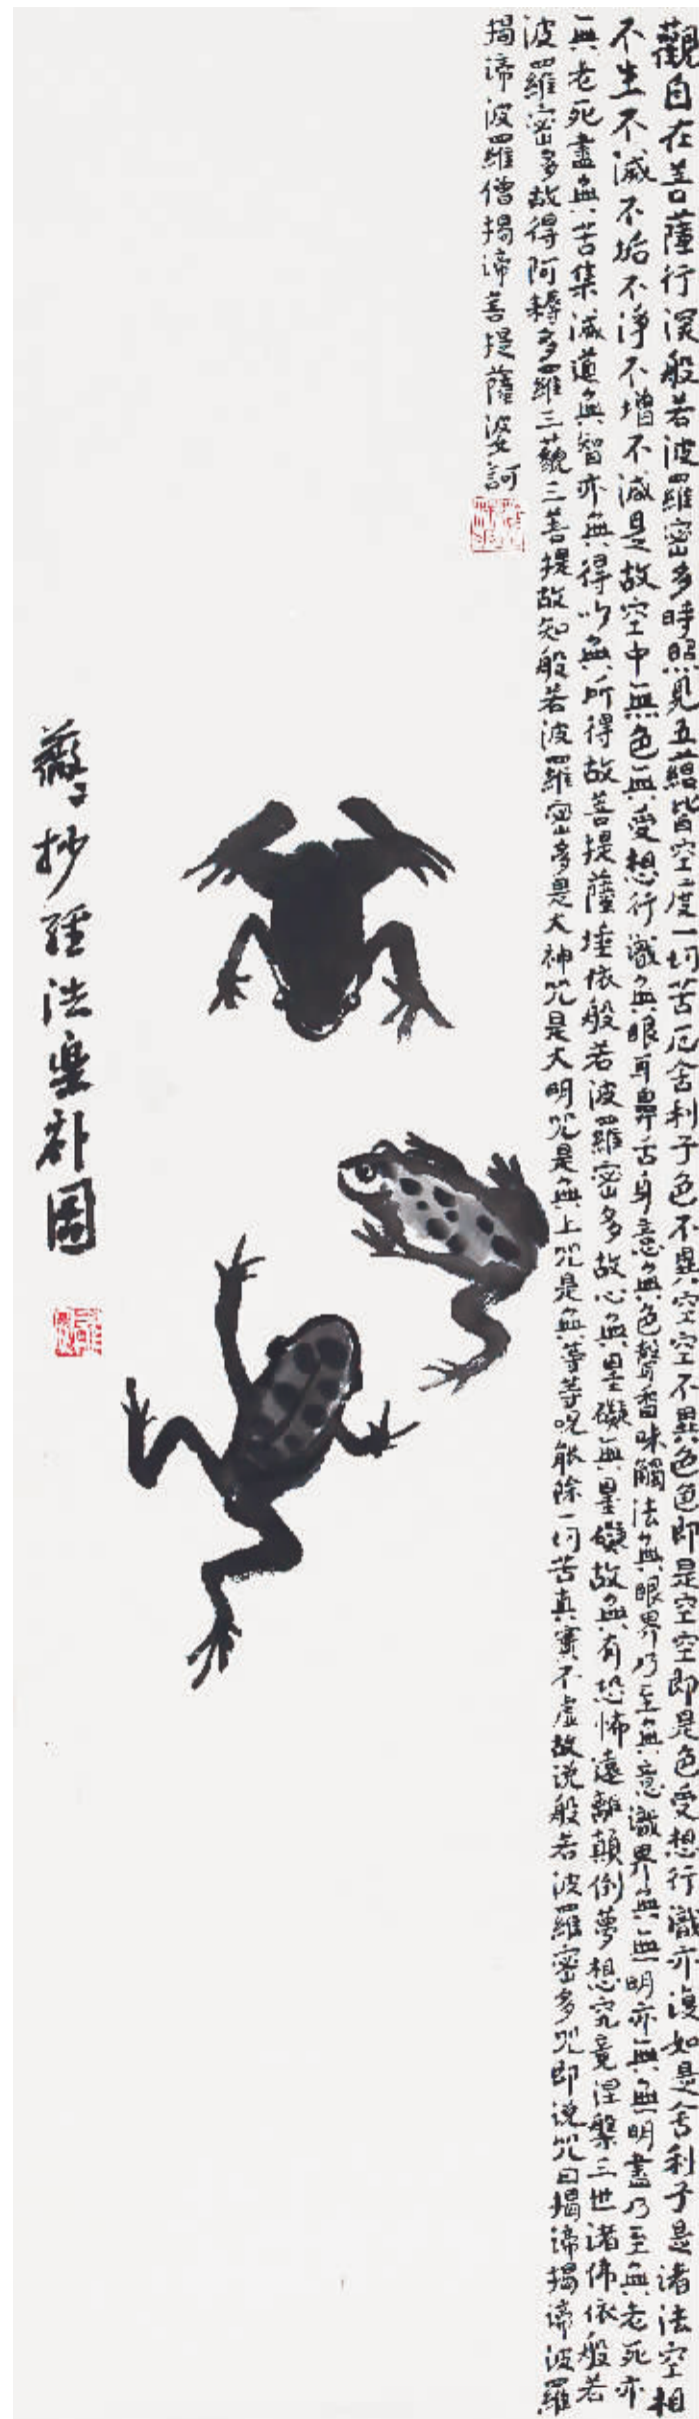 觀自在菩薩行深般若波羅密多時照見五蘊皆空度一切苦厄舍利子色不異空空不異色色即是空空即是色受想行識亦復如是舍利子是諸法空相
不生不滅不垢不淨不增不減是故空中無色無受想行識無眼耳鼻舌身意無色聲香味觸法無眼界乃至無意識界無無明亦無無明盡乃至無老死亦
無老死盡無苦集滅道無智亦無得以無所得故菩提薩埵依般若波羅密多故心無罣礙無罣礙故無有恐怖遠離顛倒夢想究竟涅槃三世諸佛依般若
波羅密多故得阿耨多羅三藐三菩提故知般若波羅密多是大神咒是大明咒是無上咒是無等等呪能除一切苦真實不虛故说般若波羅密多咒即说咒曰揭諦揭諦波羅
揭諦波羅僧揭諦菩提薩婆訶
薇薇抄經法樂補圖